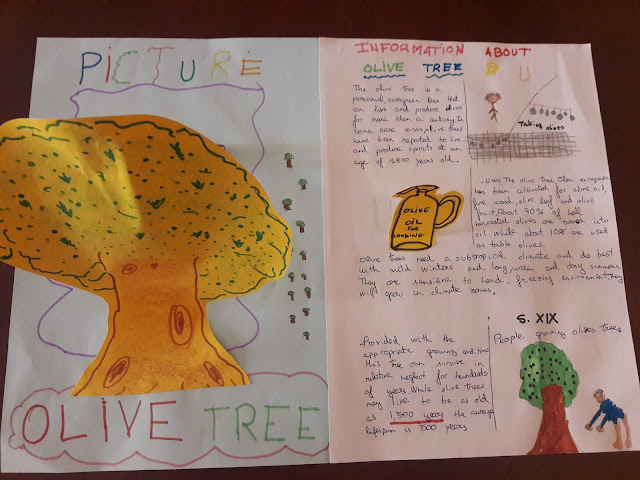 PICTURE
OLIVE TREE
INFORMATION ABOUT
OLIVE TREE
The olive tree is a
perennial, evergreen tree that
can live and produce olives
for more than a century. In
some rare cases, olive trees
have been reported to live
and produce sprouts at an
age of 1.800 years old.
Taking olives
Uses The olive tree, Olea europaea
has been cultivated for olive oil,
fire wood, olive leaf and olive
fruit. About 90% of all
harvested olives are turned into
oil while about 10% are used
as table olives.
OLIVE
OIL
FOR
COOKING
Olive trees need a subtropical climate and do best
with mild winters and long, warm and dry summers.
They are sensitive to hard, freezing environment, they
will grow in climate zones.
S. XIX
People growing olives trees
-Provided with the
appropriate growing conditions
this tree can survive in
relative neglect for hundreds
of years. While olive trees
may live to be as old
as 1,500 years the average
lifespan is 500 years